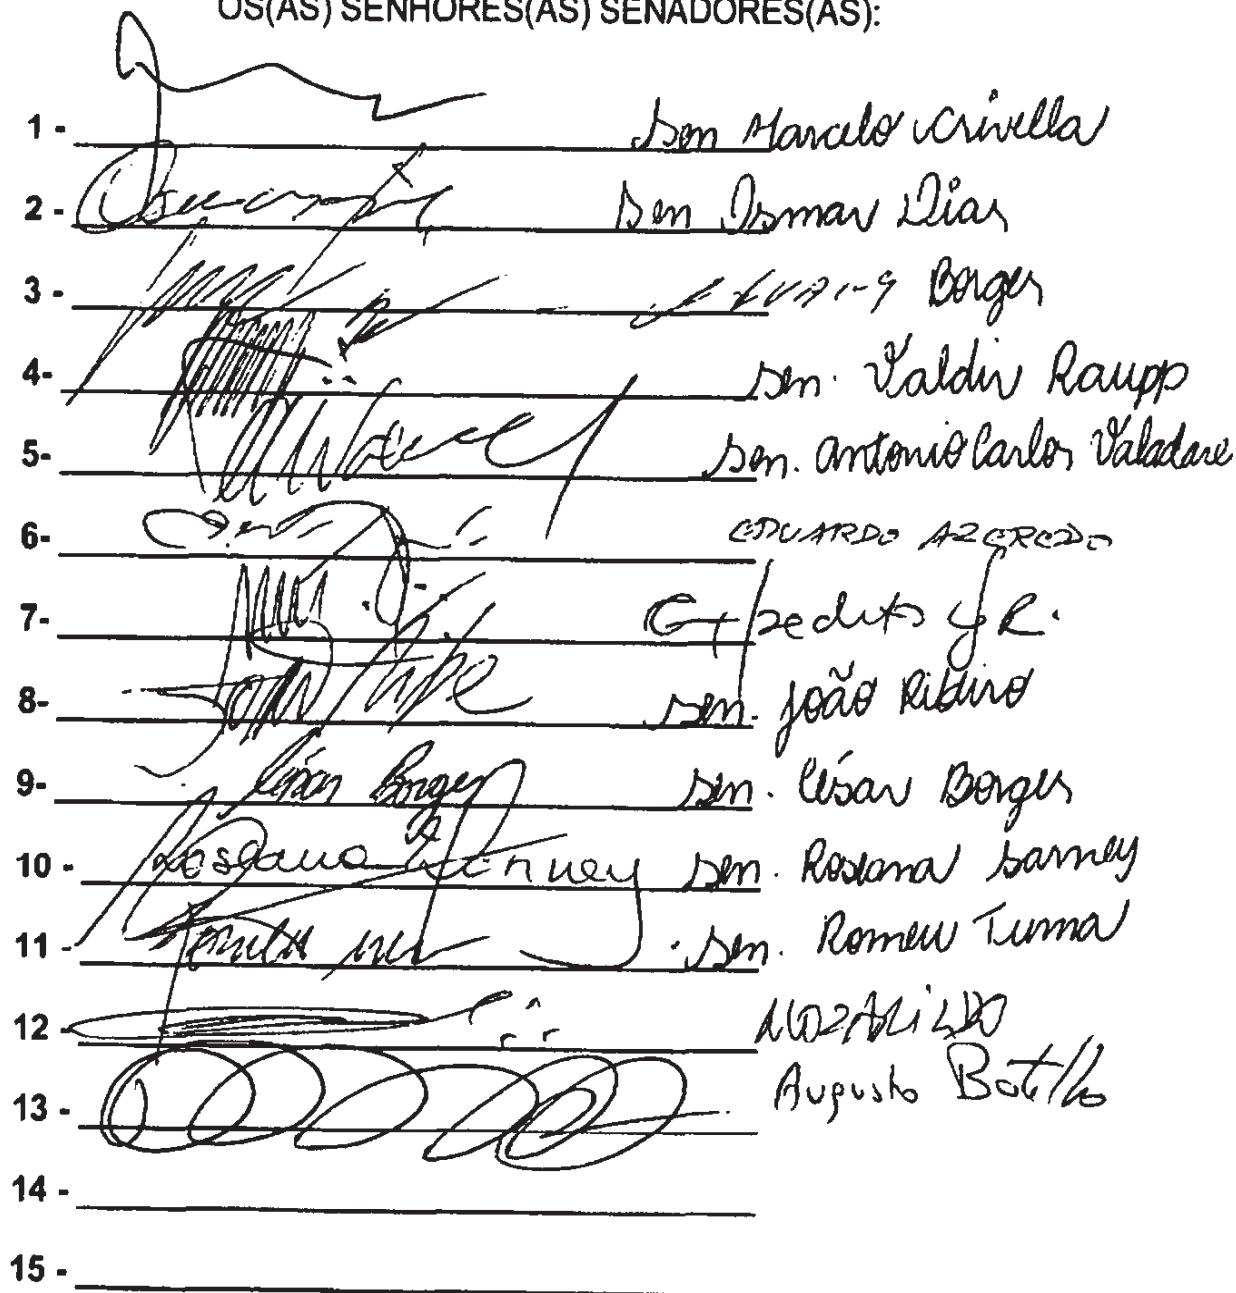 OS(AS) SENHORES(AS) SENADORES(AS):
1 - Sen Marcelo Crivella
2 - Sen Osmar Dias
3 - Borges
4- Sen. Valdir Raupp
5- Sen. Antonio Carlos Valadare
6- EDUARDO AZEREDO
7- JR.
8- Sen. João Ribeiro
9- César Borges Sen. César Borges
10 - Roseana Sarney Sen. Roseana Sarney
11 - Sen. Romeu Tuma
12 - MOZARILDO
13 - Augusto Botelho
14 -
15 -